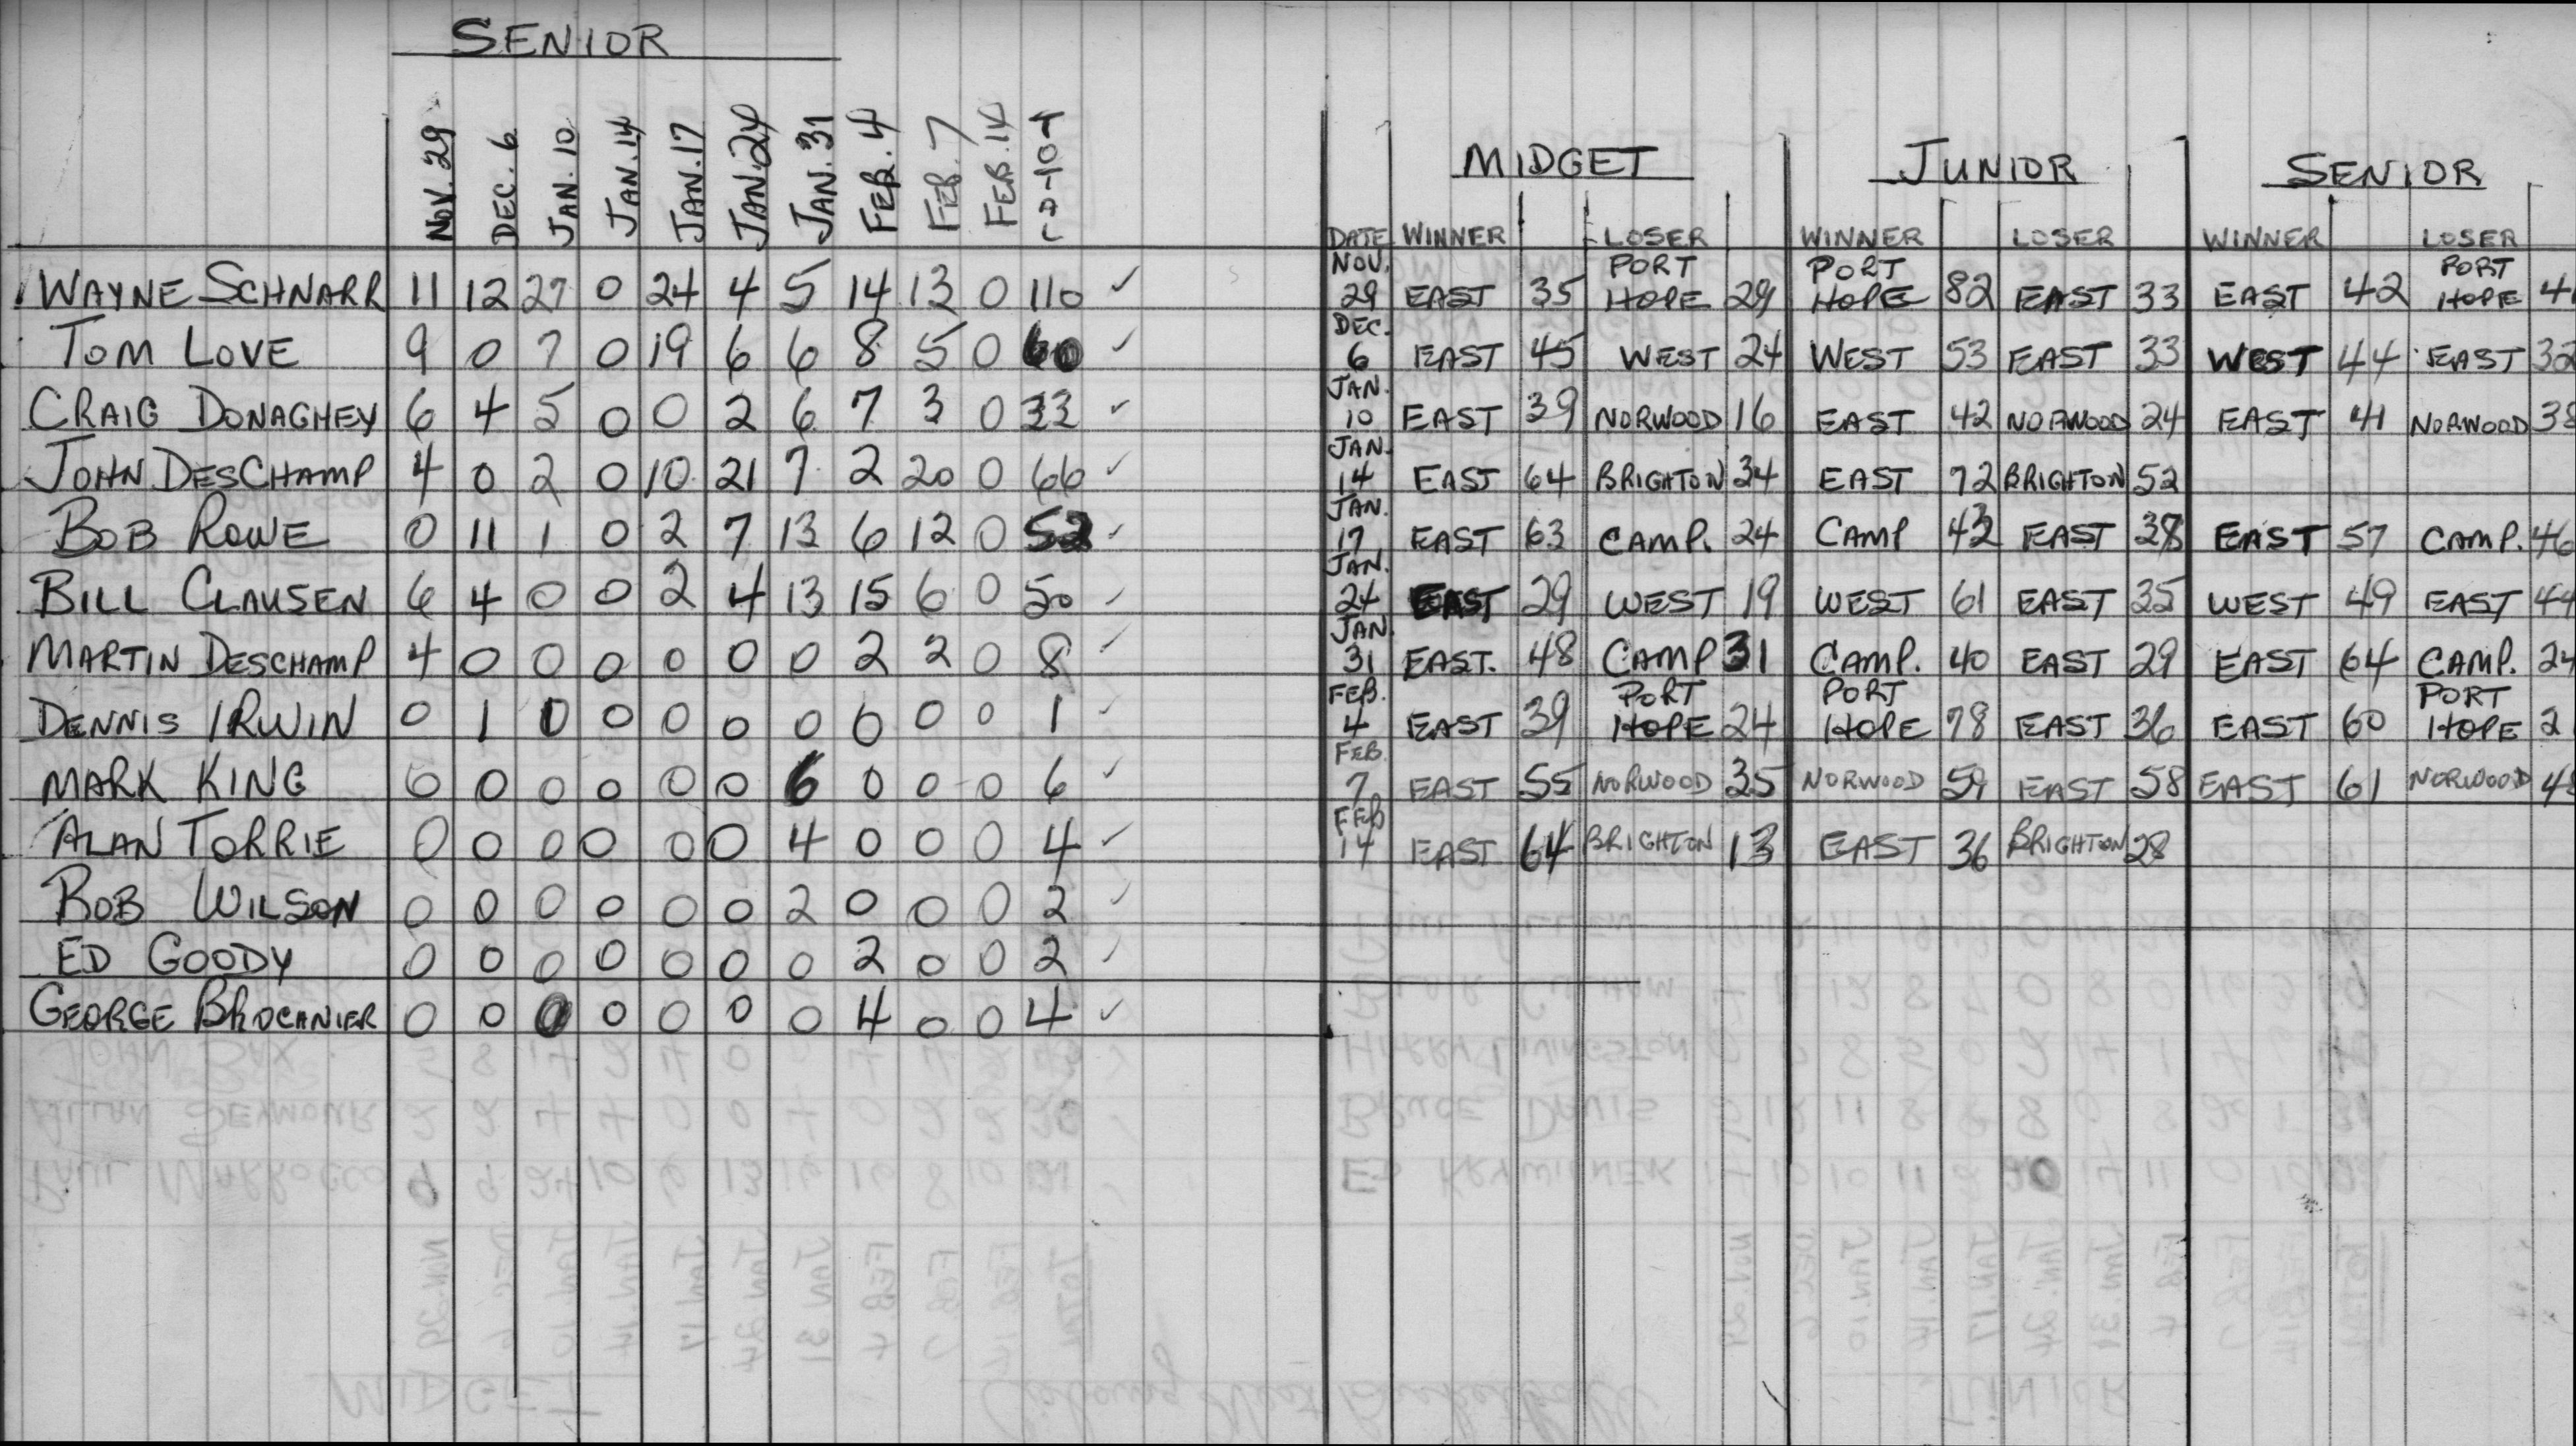 SENIOR
NOV. 29 DEC. 6 JAN. 10 JAN. 14 JAN. 17 JAN. 24 JAN. 31 FEB. 4 FEB. 7 FEB. 14 TOTAL
WAYNE SCHNARR 11 12 27 0 24 4 5 14 13 0 110 ✓
TOM LOVE 9 0 7 0 19 6 6 8 5 0 60 ✓
CRAIG DONAGHEY 6 4 5 0 0 2 6 7 3 0 33 ✓
JOHN DESCHAMP 4 0 2 0 10 21 7 2 20 0 66 ✓
BOB ROWE 0 11 1 0 2 7 13 6 12 0 52 ✓
BILL CLAUSEN 6 4 0 0 2 4 13 15 6 0 50 ✓
MARTIN DESCHAMP 4 0 0 0 0 0 0 2 2 0 8 ✓
DENNIS IRWIN 0 1 0 0 0 0 0 0 0 0 1 ✓
MARK KING 0 0 0 0 0 0 6 0 0 0 6 ✓
ALAN TORRIE 0 0 0 0 0 0 4 0 0 0 4 ✓
BOB WILSON 0 0 0 0 0 0 2 0 0 0 2 ✓
ED GOODY 0 0 0 0 0 0 0 2 0 0 2 ✓
GEORGE BROCANIER 0 0 0 0 0 0 0 4 0 0 4 ✓
MIDGET JUNIOR SENIOR
DATE WINNER LOSER WINNER LOSER WINNER LOSER
NOV. 29 EAST 35 PORT HOPE 29 PORT HOPE 82 EAST 33 EAST 42 PORT HOPE
DEC. 6 EAST 45 WEST 24 WEST 53 EAST 33 WEST 44 EAST 32
JAN. 10 EAST 39 NORWOOD 16 EAST 42 NORWOOD 24 EAST 41 NORWOOD 38
JAN. 14 EAST 64 BRIGHTON 34 EAST 72 BRIGHTON 52
JAN. 17 EAST 63 CAMP. 24 CAMP 43 EAST 38 EAST 57 CAMP. 46
JAN. 24 EAST 29 WEST 19 WEST 61 EAST 35 WEST 49 EAST 44
JAN 31 EAST. 48 CAMP 31 CAMP. 40 EAST 29 EAST 64 CAMP. 24
FEB. 4 EAST 39 PORT HOPE 24 PORT HOPE 78 EAST 36 EAST 60 PORT HOPE
FEB. 7 EAST 55 NORWOOD 35 NORWOOD 59 EAST 58 EAST 61 NORWOOD 48
FEB 14 EAST 64 BRIGHTON 13 EAST 36 BRIGHTON 28